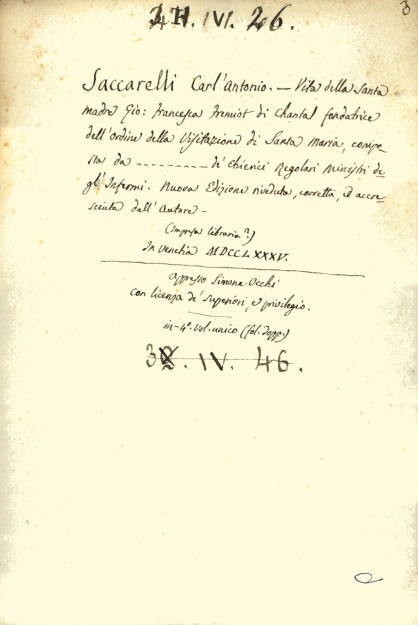 IVI. 26.
3
Saccarelli Carl'Antonio. — Vita della Santa
madre Gio: Francesca Fremiot di Chantal fondatrice
dell'Ordine della Visitazione di Santa Maria, compo-
sta da --------- de' Chierici Regolari Ministri de-
gl'Infermi. Nuova Edizione riveduta, corretta, ed accre-
sciuta dall'Autore —
(Impresa libraria?)
In Venetia MDCCLXXXV.
appresso Simone Occhi
con licenza de' Superiori, e privilegio.
in-4°. vol. unico (fol. dopp.)
IV. 46.